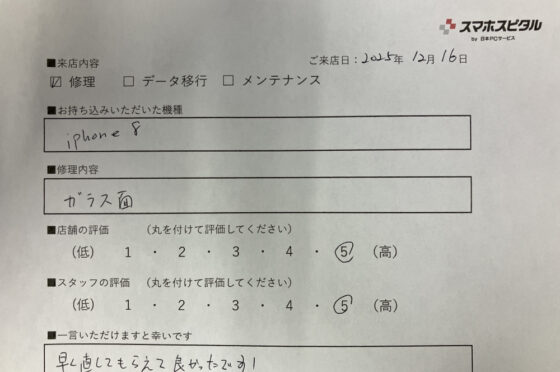 スマホスピタル
by 日本PCサービス
■来店内容
ご来店日：2025年 12月 16日
☑ 修理 □ データ移行 □ メンテナンス
■お持ち込みいただいた機種
iphone 8
■修理内容
ガラス面
■店舗の評価 （丸を付けて評価してください）
（低） 1 ・ 2 ・ 3 ・ 4 ・ 5 （高）
■スタッフの評価 （丸を付けて評価してください）
（低） 1 ・ 2 ・ 3 ・ 4 ・ 5 （高）
■一言いただけますと幸いです
早く直してもらえて良かったです!